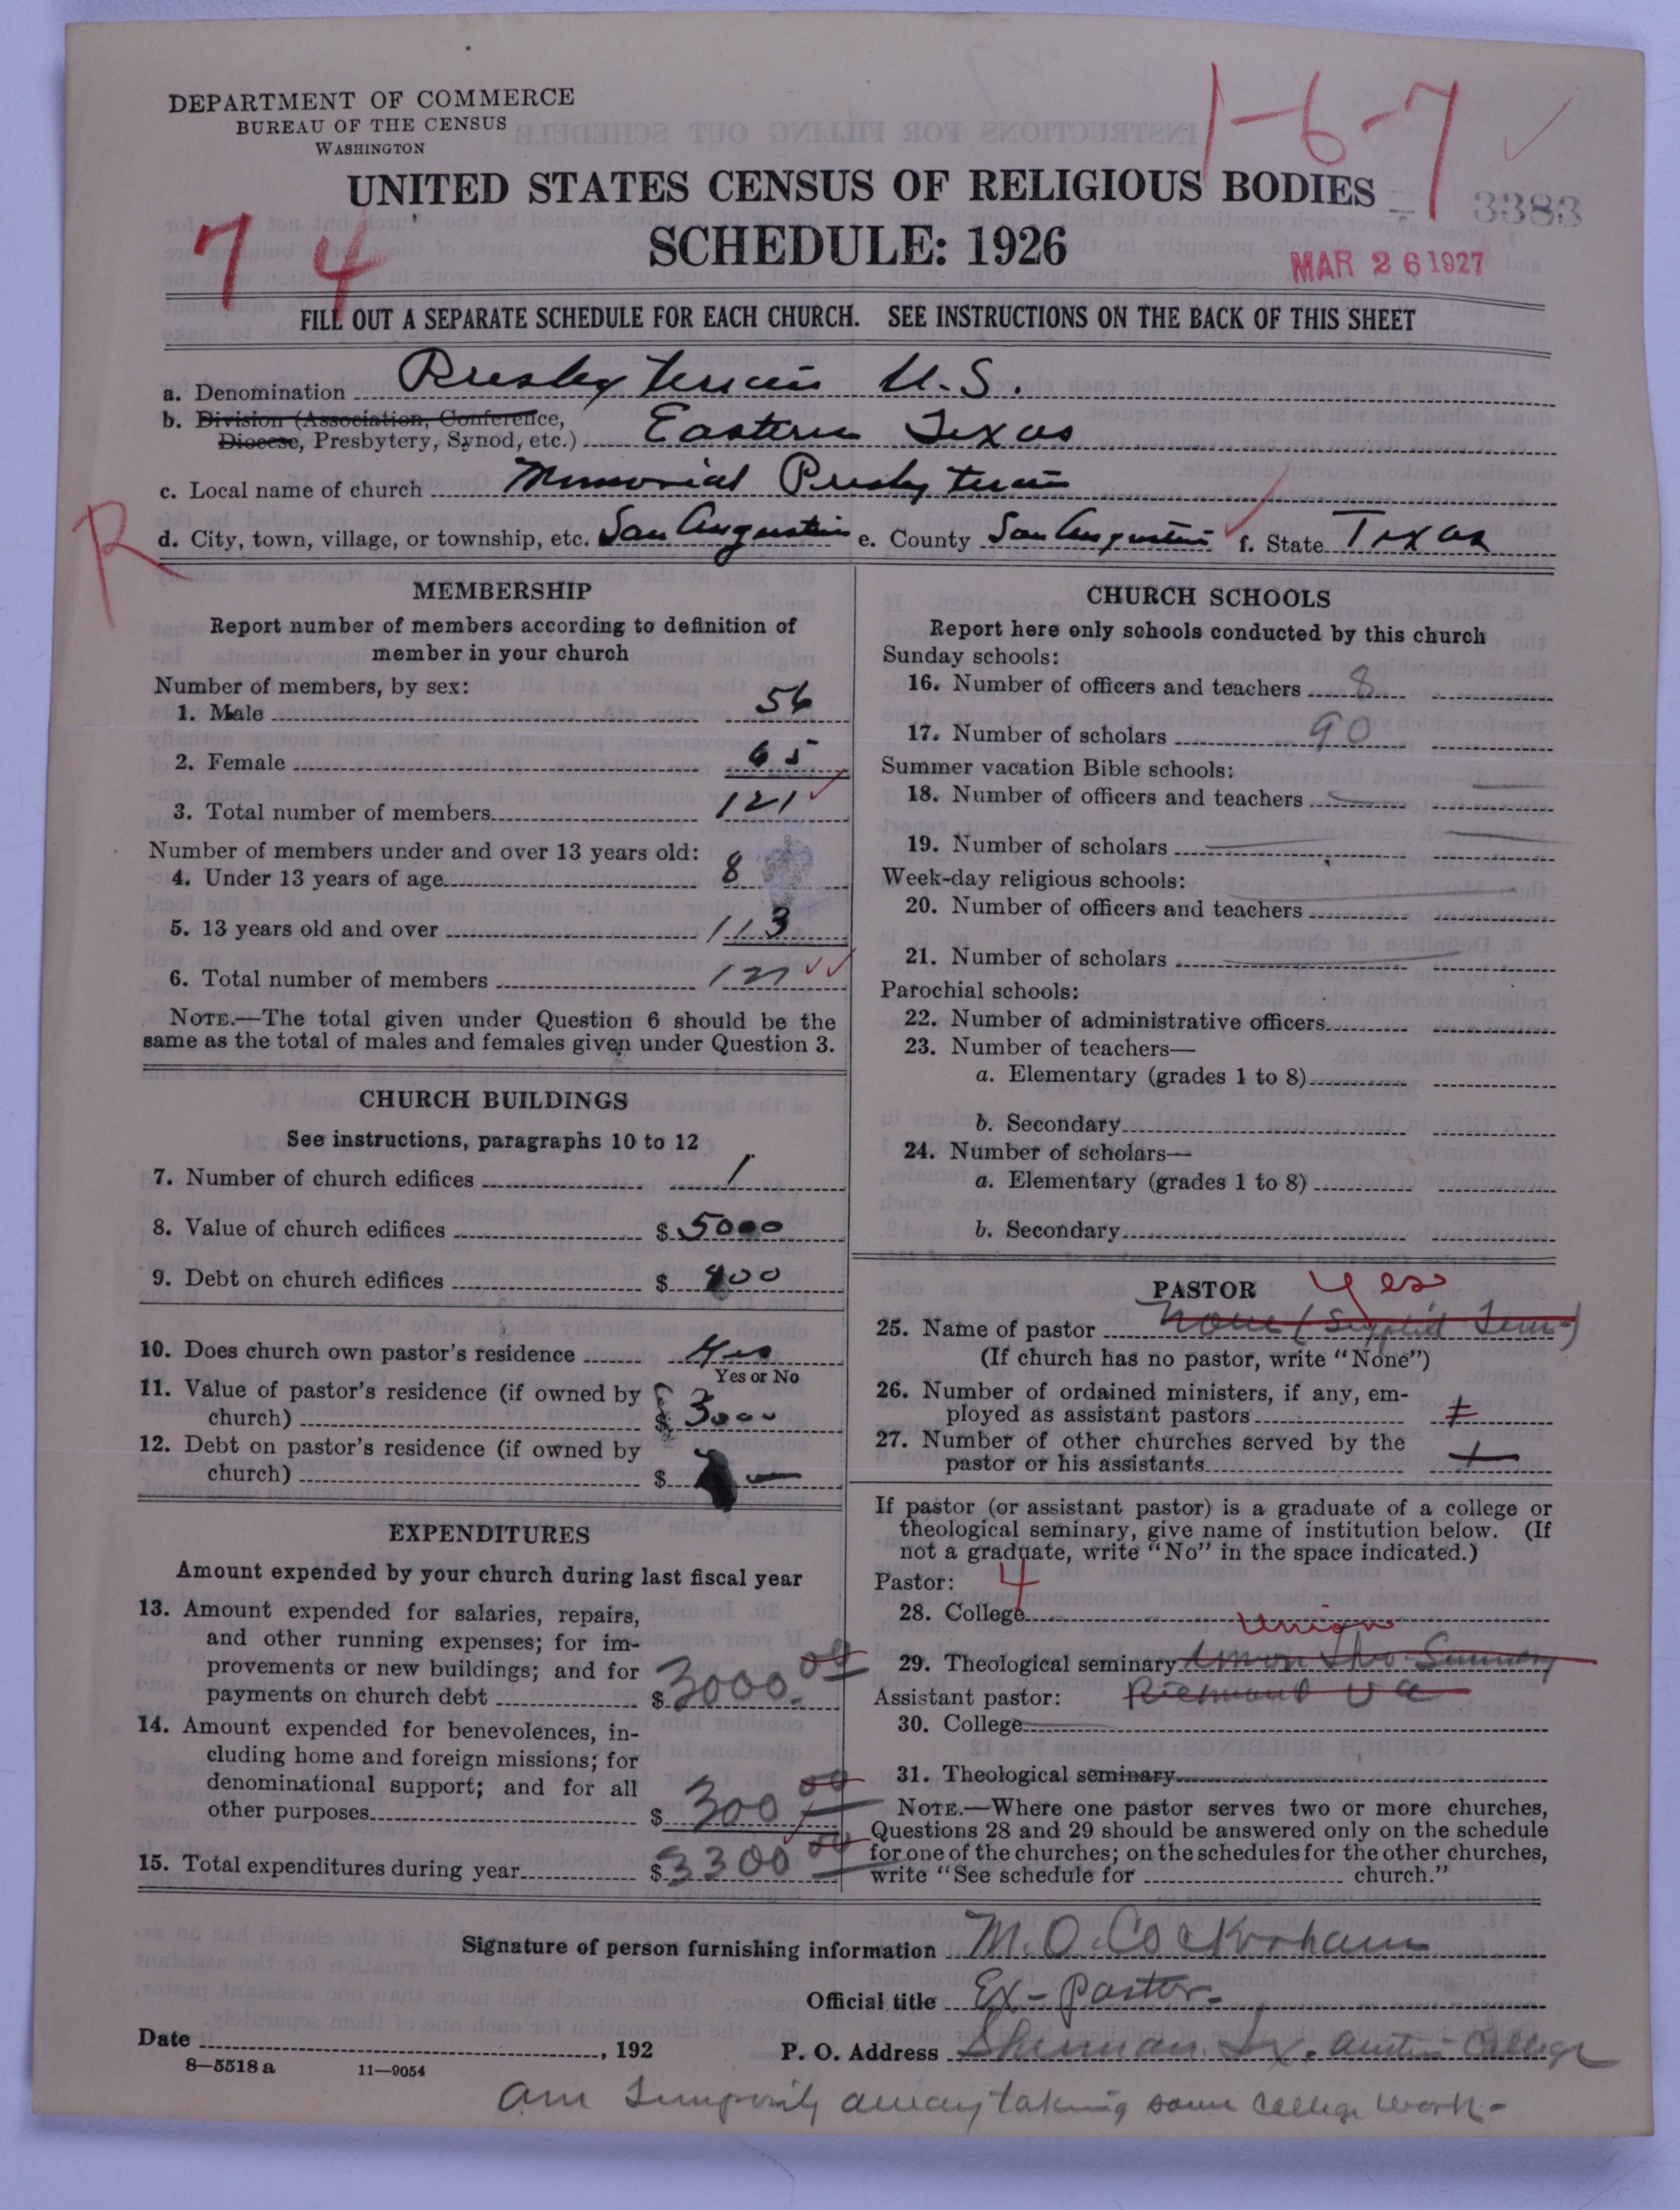 DEPARTMENT OF COMMERCE
BUREAU OF THE CENSUS
WASHINGTON
1-6-7
UNITED STATES CENSUS OF RELIGIOUS BODIES
3383
7 4
SCHEDULE: 1926
MAR 26 1927
FILL OUT A SEPARATE SCHEDULE FOR EACH CHURCH. SEE INSTRUCTIONS ON THE BACK OF THIS SHEET
a. Denomination Presbyterian U.S.
b. Division (Association, Conference,
Diocese, Presbytery, Synod, etc.) Eastern Texas
c. Local name of church Memorial Presbyterian
R
d. City, town, village, or township, etc. San Augustine e. County San Augustine f. State Texas
MEMBERSHIP
Report number of members according to definition of
member in your church
Number of members, by sex:
1. Male 56
2. Female 65
3. Total number of members 121
Number of members under and over 13 years old:
4. Under 13 years of age 8
5. 13 years old and over 113
6. Total number of members 121
NOTE.—The total given under Question 6 should be the
same as the total of males and females given under Question 3.
CHURCH BUILDINGS
See instructions, paragraphs 10 to 12
7. Number of church edifices 1
8. Value of church edifices $ 5000
9. Debt on church edifices $ 400
10. Does church own pastor's residence Yes
Yes or No
11. Value of pastor's residence (if owned by
church) $ 3000
12. Debt on pastor's residence (if owned by
church) $ —
EXPENDITURES
Amount expended by your church during last fiscal year
13. Amount expended for salaries, repairs,
and other running expenses; for im-
provements or new buildings; and for
payments on church debt $ 3000.00
14. Amount expended for benevolences, in-
cluding home and foreign missions; for
denominational support; and for all
other purposes $ 300 00
15. Total expenditures during year $ 3300 00
CHURCH SCHOOLS
Report here only schools conducted by this church
Sunday schools:
16. Number of officers and teachers 8
17. Number of scholars 90
Summer vacation Bible schools:
18. Number of officers and teachers
19. Number of scholars
Week-day religious schools:
20. Number of officers and teachers
21. Number of scholars
Parochial schools:
22. Number of administrative officers
23. Number of teachers—
a. Elementary (grades 1 to 8)
b. Secondary
24. Number of scholars—
a. Elementary (grades 1 to 8)
b. Secondary
PASTOR Yes
25. Name of pastor None (Supplied Tem-)
(If church has no pastor, write "None")
26. Number of ordained ministers, if any, em-
ployed as assistant pastors
27. Number of other churches served by the
pastor or his assistants
If pastor (or assistant pastor) is a graduate of a college or
theological seminary, give name of institution below. (If
not a graduate, write "No" in the space indicated.)
Pastor: 4
28. College
Union
29. Theological seminary Union Theo. Seminary
Assistant pastor: Richmond Va
30. College
31. Theological seminary
NOTE.—Where one pastor serves two or more churches,
Questions 28 and 29 should be answered only on the schedule
for one of the churches; on the schedules for the other churches,
write "See schedule for church."
Signature of person furnishing information M.O. Cockroham
Official title Ex-Pastor-
Date , 192
P. O. Address Sherman Tx. Austin College
8—5518 a 11—9054
am temporily away taking some college work-